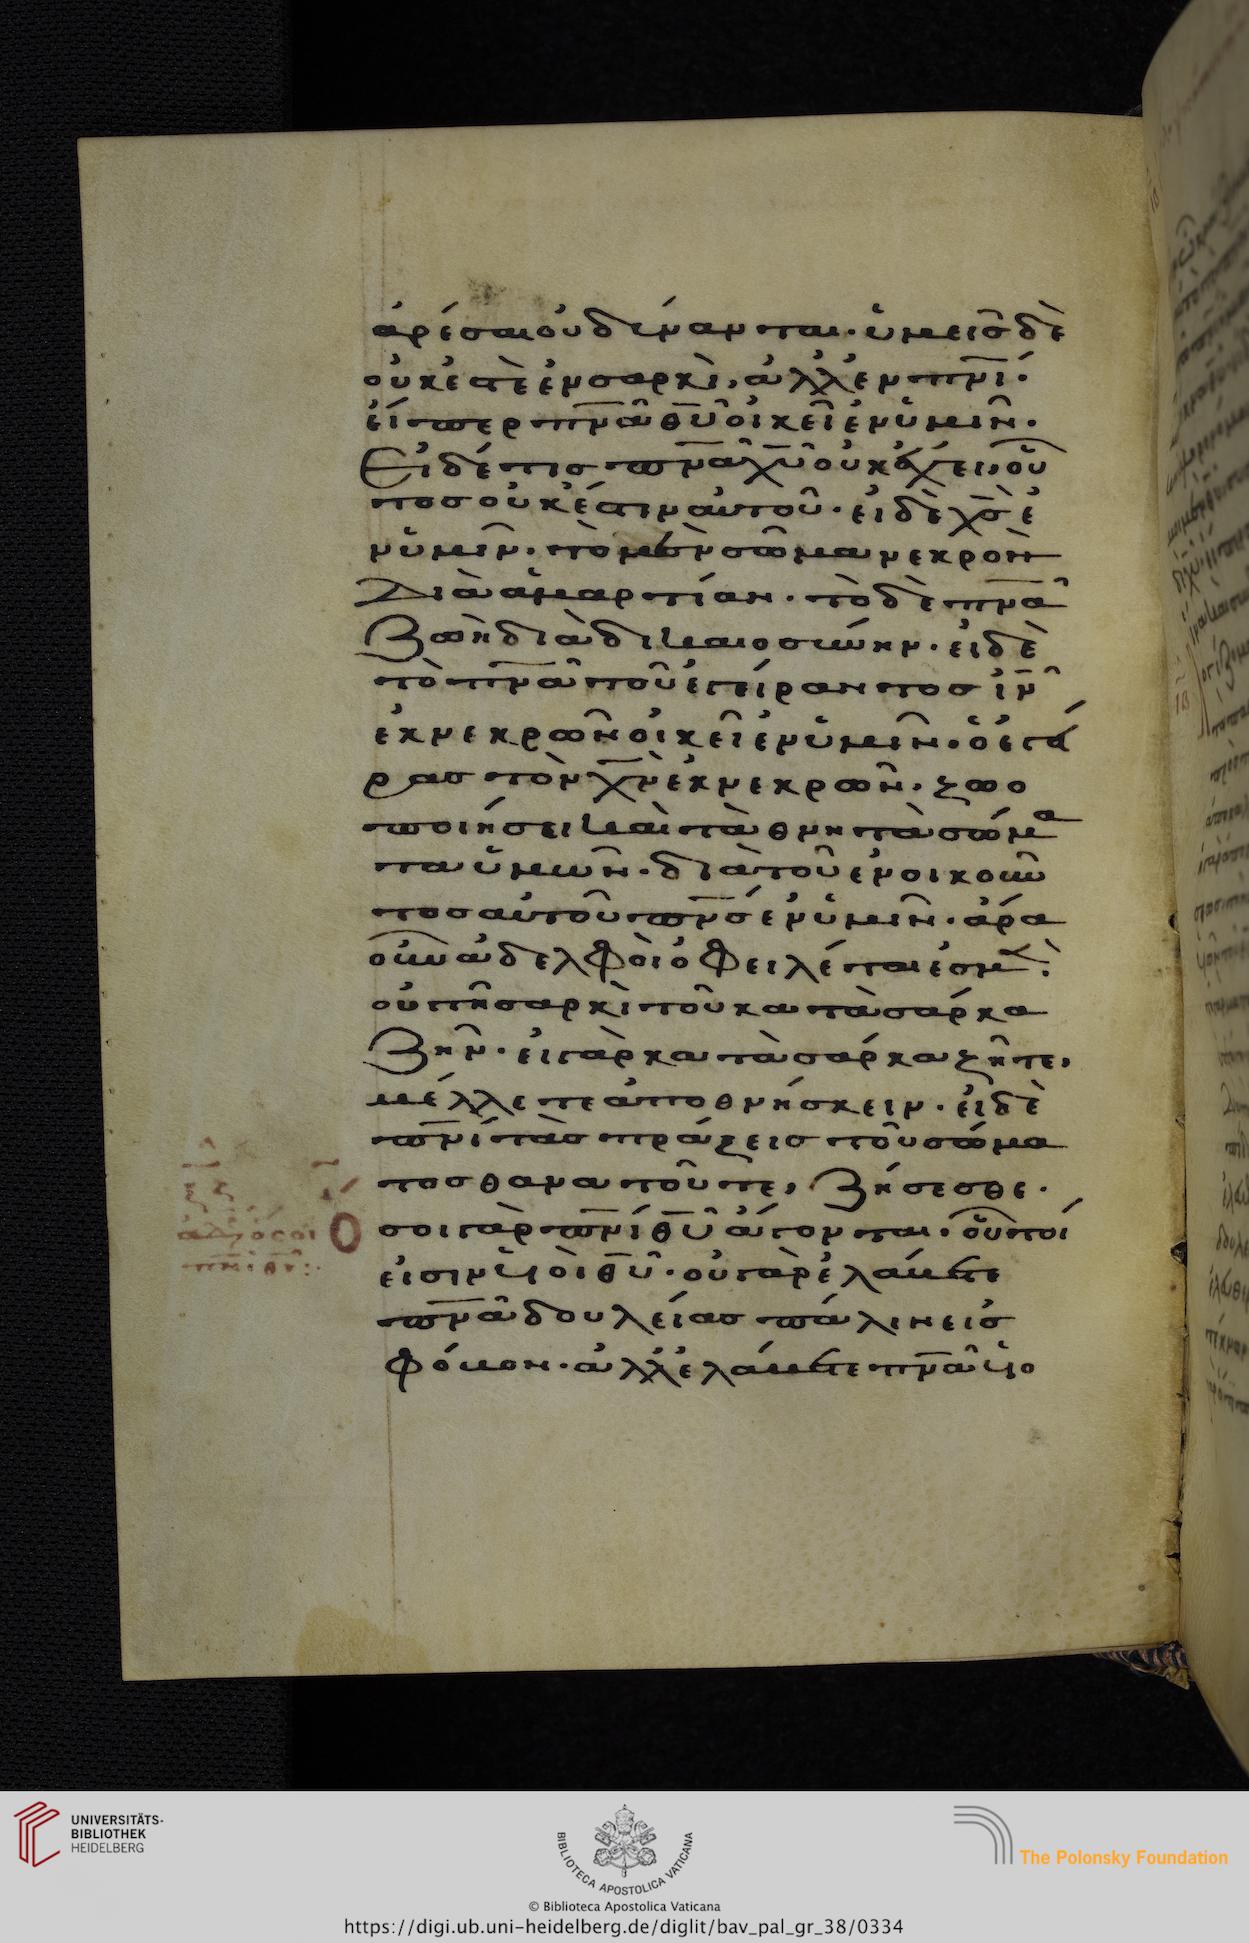 ἀρέσαι οὐ δύνανται· ὑμεῖς δὲ
οὐκ ἐστὲ ἐν σαρκὶ, ἀλλ ἐν π̅ν̅ι̅·
εἴπερ π̅ν̅α̅ θ̅υ̅ οἰκεῖ ἐν ὑμῖν·
Εἰ δέ τις π̅ν̅α̅ χ̅υ̅ οὐκ ἔχει, οὗ
τος οὐκ έστιν αὐτοῦ· εἰ δὲ χ̅ς̅ ἐ
ν ὑμῖν· τὸ μὲν σῶμα νεκρὸν
Διὰ ἁμαρτίαν· τὸ δὲ π̅ν̅α̅
Ζωὴ διὰ δικαιοσύνην· εἰ δὲ
τὸ π̅ν̅α̅ τοῦ ἐγείραντος ἰ̅ν̅
ἐκ νεκρῶν οἰκεῖ ἐν ὑμῖν· ὁ ἐγεί
ρας τὸν χ̅ν̅ ἐκ νεκρῶν· ζωο
ποιήσει καὶ τὰ θνητὰ σώμα
τα ὑμῶν· διὰ τοῦ ἐνοικοῦν
τος αὐτοῦ π̅ν̅ς̅ ἐν ὑμῖν· ἀρα
οὖν ἀδελφοὶ ὀφειλέται ἐσμὲν·
οὐ τῆ σαρκὶ τοῦ κατὰ σάρκα
Ζῆν· εἰ γὰρ κατὰ σάρκα ζῆτε,
μέλλετε ἀποθνήσκειν· εἰ δὲ
π̅ν̅ι̅ τὰς πράξεις τοῦ σώμα
τος θανατοῦτε, Ζήσεσθε·
Ὅσοι γὰρ π̅ν̅ι̅ θ̅υ̅ ἄγονται· οὗτοί
εἰσιν ὑιοὶ θ̅υ̅· οὐ γὰρ ἐλάβετε
π̅ν̅α̅ δουλείας πάλιν εἰς
φόβον· ἀλλ ἐλάβετε π̅ν̅α̅ ὑιο
ἀδ ὅσοι
π̅ν̅ι̅ θ̅υ̅:
UNIVERSITÄTS-
BIBLIOTHEK
HEIDELBERG
BIBLIOTECA APOSTOLICA VATICANA
The Polonsky Foundation
© Biblioteca Apostolica Vaticana
https://digi.ub.uni-heidelberg.de/diglit/bav_pal_gr_38/0334